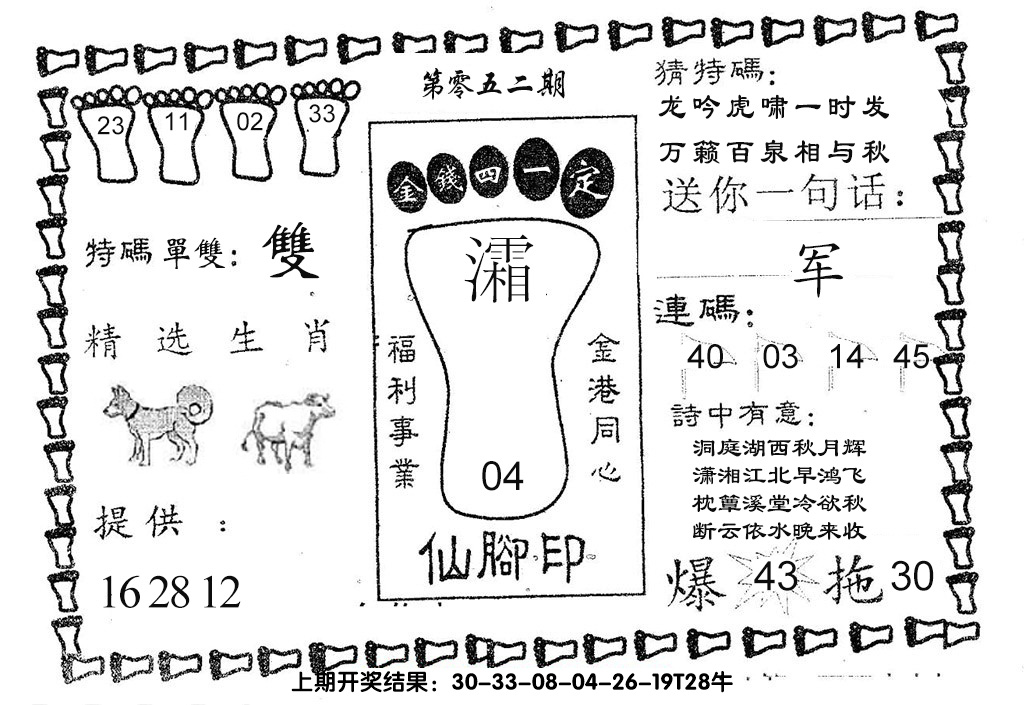 第零五二期
23 11 02 33
特碼單雙：雙
精选生肖
提供：
16 28 12
金錢四一定
灀
04
福利事業
金港同心
仙腳印
猜特碼：
龙吟虎啸一时发
万籁百泉相与秋
送你一句话：
军
連碼：
40 03 14 45
詩中有意：
洞庭湖西秋月辉
潇湘江北早鸿飞
枕簟溪堂冷欲秋
断云依水晚来收
爆 43 拖 30
上期开奖结果：30-33-08-04-26-19T28牛